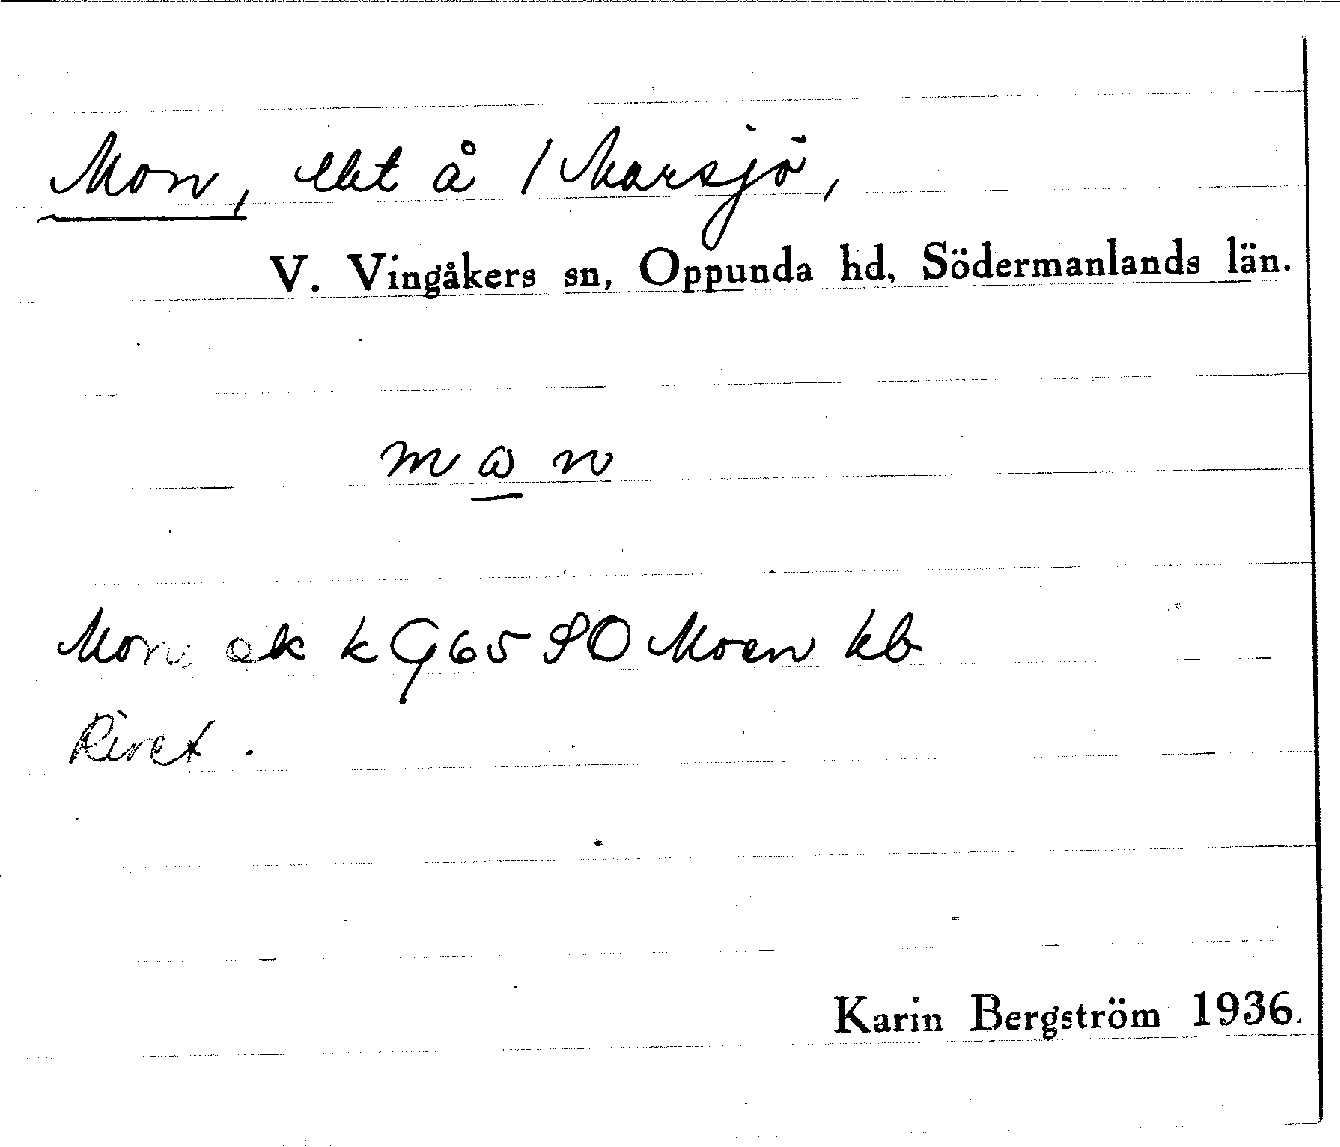 Mon, lht å 1 Marsjö,
V. Vingåkers sn, Oppunda hd, Södermanlands län.
m ω n
Mon ek k G65 SO Moen kb
Rivet.
Karin Bergström 1936.